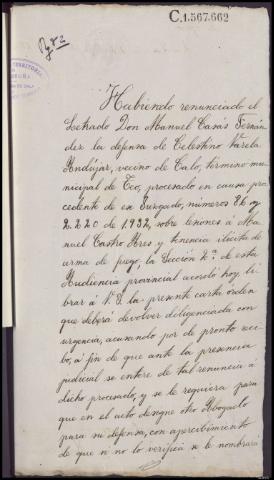 C.1.567.662
Habiendo renunciado el
Letrado Don Manuel Casás Fernán
dez la defensa de Celestino Varela
Andújar, vecino de Calo, término mu-
nicipal de Teo, procesado en causa pro-
cedente de ese Juzgado, números 86 y
2.220 de 1932, sobre lesiones á Ma-
nuel Castro Ares y tenencia ilícita de
arma de fuego, la Sección 2ª de esta
Audiencia provincial acordó hoy li-
brar á V.S. la presente carta orden
que deberá devolver diligenciada con
urgencia, acusando por de pronto reci-
bo, á fin de que ante la presencia
judicial se entere de tal renuncia á
dicho procesado, y se le requiera para
que en el acto designe otro Abogado
para su defensa, con apercibimiento
de que si no lo verifica se le nombrará